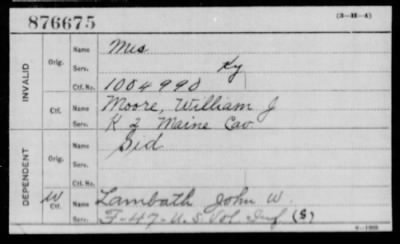 876675 (3-H-4)
INVALID
Orig. Name Mis
Serv. Ky
Ctf. No. 1004990
Ctf. Name Moore, William J
Serv. K 2 Maine Cav.
DEPENDENT
Orig. Name Sid
Serv.
Ctf. No.
W Ctf. Name Lambath John W.
Serv. F-47-U.S. Vol. Inf (S)